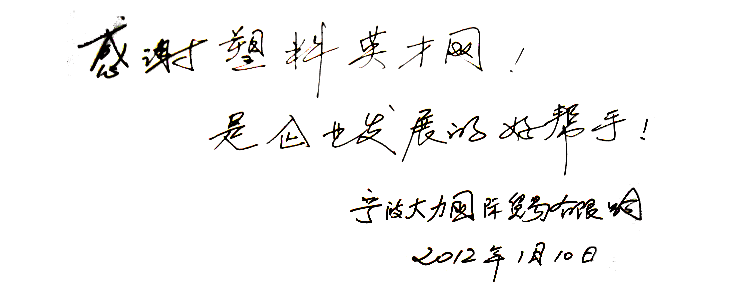 感谢塑料英才网!
是企业发展的好帮手!
宁波大力国际贸易有限公司
2012年1月10日